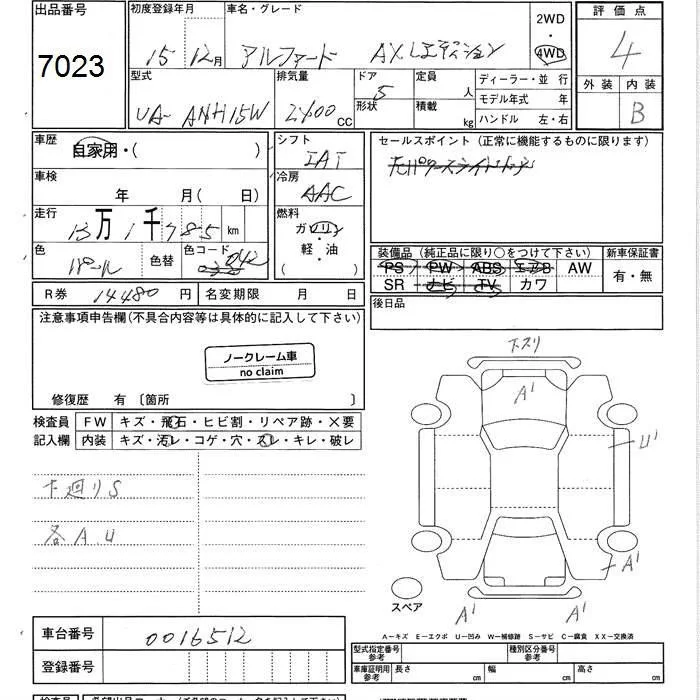 出品番号 初度登録年月 車名・グレード 2WD 評価点
7023 15年12月 アルファード AXLエディション ・ 4WD 4
型式 排気量 ドア 定員 ディーラー・並行 外装 内装
UA- ANH15W 2400CC 5 人 モデル年式 年 B
形状 積載 kg ハンドル 左・右
車歴 シフト セールスポイント (正常に機能するものに限ります)
自家用・( ) IAT
車検 冷房
年 月( 日) AAC
走行 燃料
13万1千785km ガソリン
装備品 (純正品に限り○をつけて下さい) 新車保証書
色 色替 色コード 軽・油 PS PW ABS エアB AW 有・無
パール 042 ( ) SR ナビ TV カワ
R券 14480円 名変期限 月 日 後日品
注意事項申告欄(不具合内容等は具体的に記入して下さい)
ノークレーム車
no claim
修復歴 有 〔箇所 〕
検査員 FW キズ・飛石・ヒビ割・リペア跡・×要
記入欄 内装 キズ・汚レ・コゲ・穴・スレ・キレ・破レ
下廻りS
各AU
下スリ
A'
U'
A'
A' A'
スペア
A…キズ E…エクボ U…凹み W…補修跡 S…サビ C…腐食 XX…交換済
車台番号 0016512
型式指定番号 参考 種別区分番号 参考
登録番号 車庫証明用 参考 長さ 幅 高さ